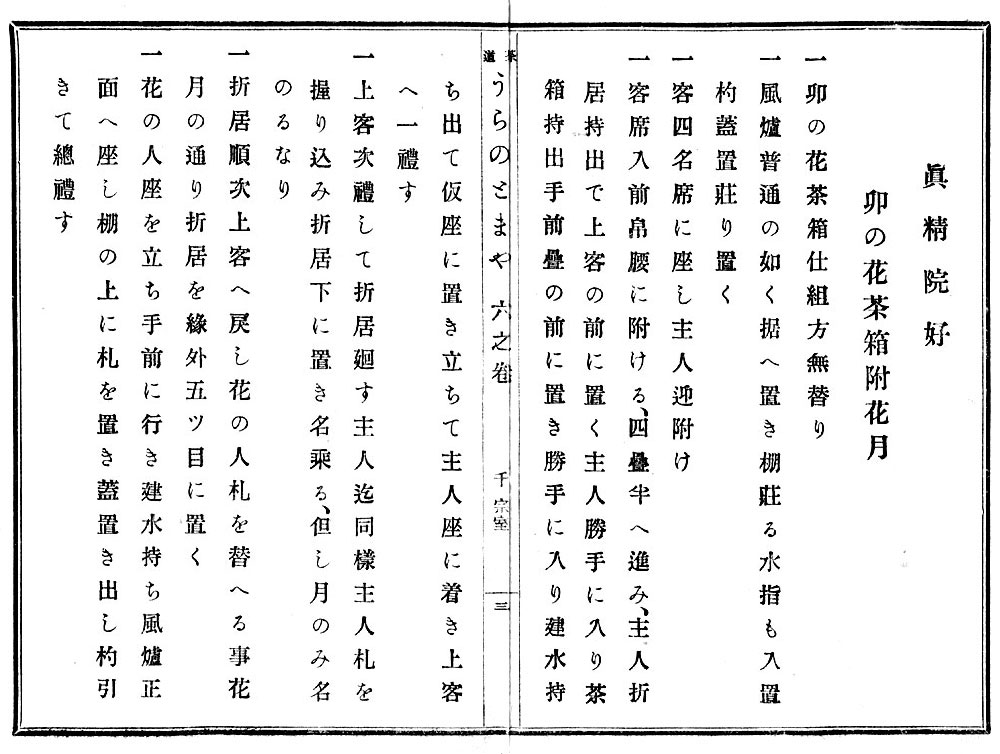 眞精院好
卯の花茶箱附花月
一卯の花茶箱仕組方無替り
一風爐普通の如く据へ置き棚莊る水指も入置
杓蓋置莊り置く
一客四名席に座し主人迎附け
一客席入前帛腰に附ける、四疊半へ進み、主人折
居持出で上客の前に置く主人勝手に入り茶
箱持出手前疊の前に置き勝手に入り建水持
茶道うらのとまや 六之卷 千宗室 三
ち出て仮座に置き立ちて主人座に着き上客
へ一禮す
一上客次禮して折居廻す主人迄同樣主人札を
握り込み折居下に置き名乘る、但し月のみ名
のるなり
一折居順次上客へ戾し花の人札を替へる事花
月の通り折居を緣外五ツ目に置く
一花の人座を立ち手前に行き建水持ち風爐正
面へ座し棚の上に札を置き蓋置き出し杓引
きて總禮す